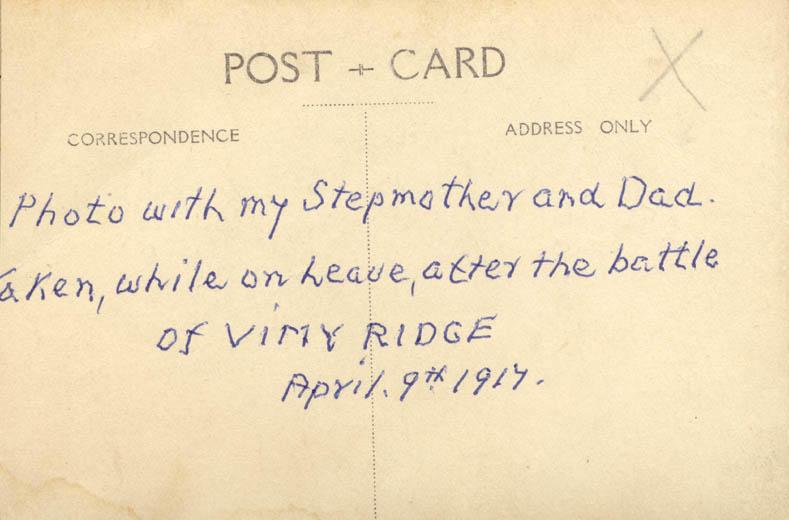 POST CARD
CORRESPONDENCE
ADDRESS ONLY
Photo with my Stepmother and Dad.
Taken, while on Leave, after the battle
of VIMY RIDGE
April. 9th 1917.